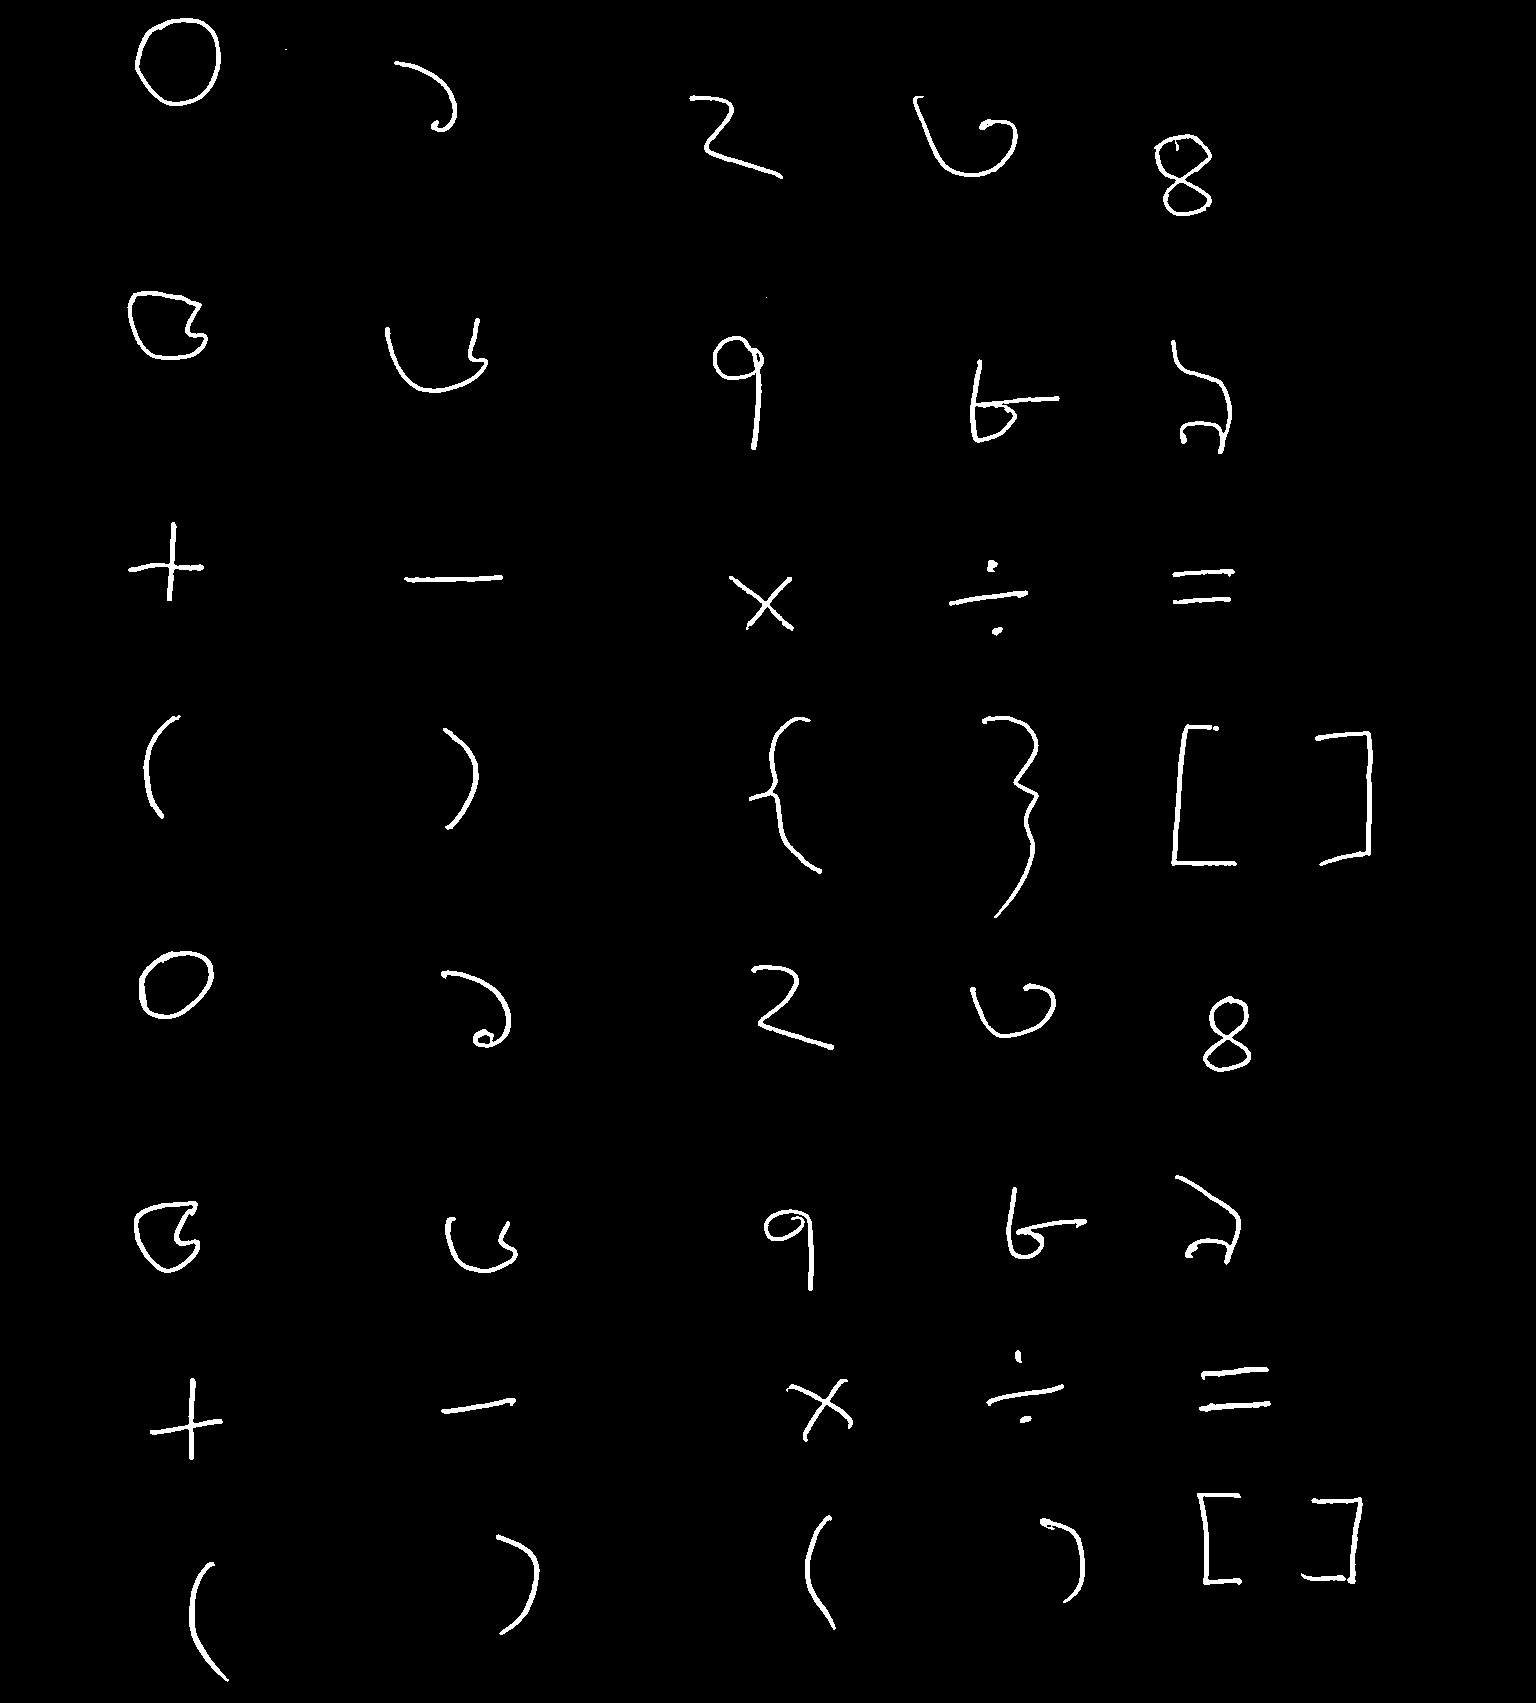 ০ ১ ২ ৩ ৪
৫ ৬ ৭ ৮ ৯
+ − × ÷ =
( ) { } [ ]
০ ১ ২ ৩ ৪
৫ ৬ ৭ ৮ ৯
+ − × ÷ =
( ) ( ) [ ]